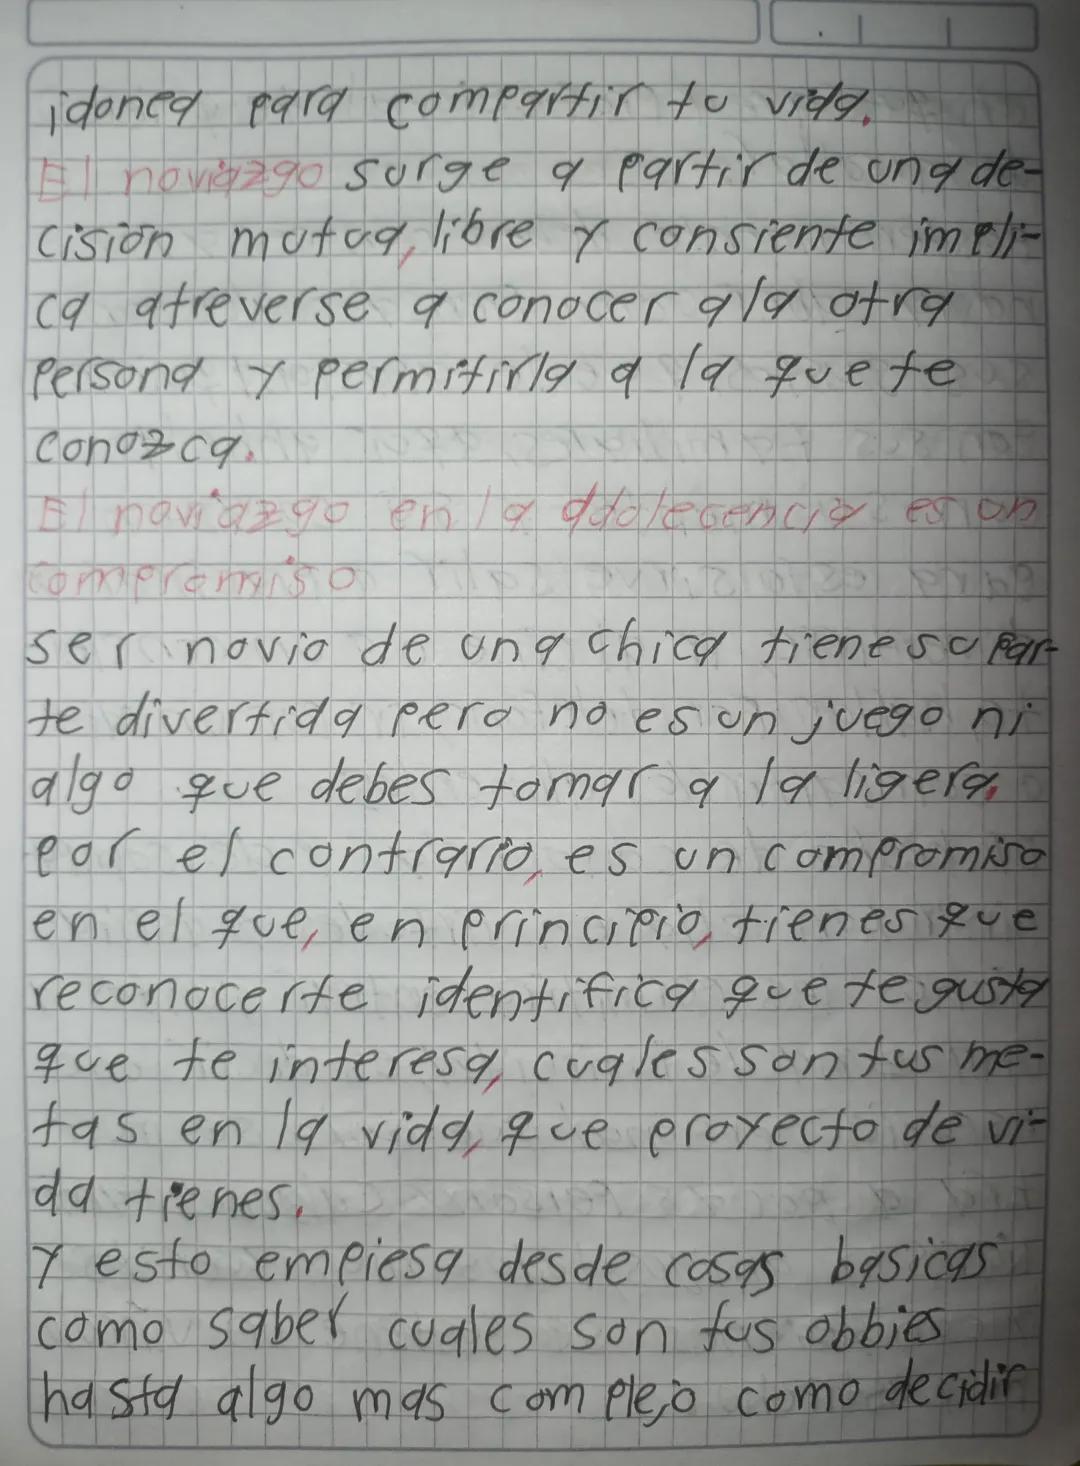 idonea para compartir tu vida.
El noviazgo surge a partir de una de-
cisión mutua, libre y consiente impli-
ca atreverse a conocer a la otra
persona y permitirla a la que te
conozca.
El noviazgo en la adolecencia es un
compromiso
ser novio de una chica tiene su par-
te divertida pero no es un juego ni
algo que debes tomar a la ligera.
por el contrario, es un compromiso
en el que, en principio, tienes que
reconocerte identifica que te gusta
que te interesa, cuales son tus me-
tas en la vida, que proyecto de vi-
da tienes.
Y esto empiesa desde cosas basicas
como saber cuales son tus obbies
hasta algo mas complejo como decidir